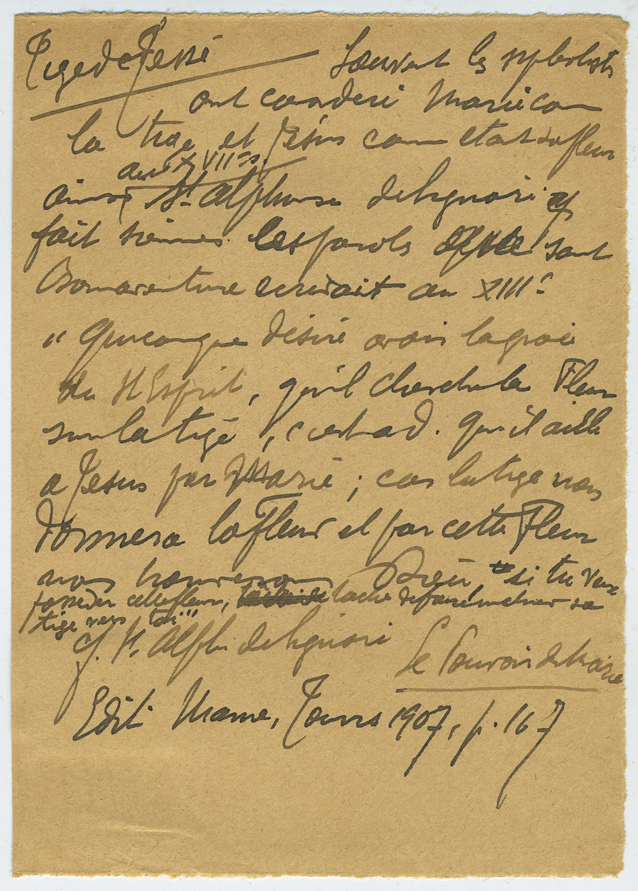 Tige de Jessé Souvent les symbolistes
ont consideré Marie com
la tige et Jésus comm etant la fleur
au XVIIes.
ainsi St. Alphonse de Liguori qui
fait siennes les paroles que saint
Bonaventure ecrivait au XIIIe
" Quiconque désire avoir la grace
du St Esprit, qu'il cherche la Fleur
sur la tige, c'est a d. qu'il aille
a Jesus par Marie ; car la tige nous
donnera la Fleur et par cette Fleur
nous trouverons Dieu, " si tu veux
posseder cette fleur, tache de faire incliner sa
tige vers toi""
cf. St. Alph. de Liguori Le Pouvoir de Marie
Edit. Mame, Tours 1907, p. 167